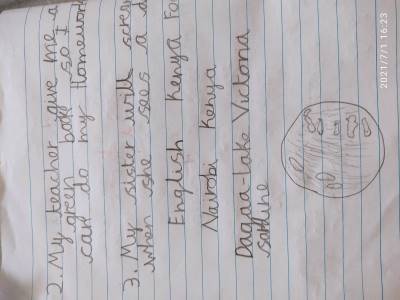 2. My teacher give me a
green book so I
can do my Homework
3. My sister will
when she sees a
English Kenya
Nairobi Kenya
Dagaa-Lake Victoria
2021/7/1 16:23